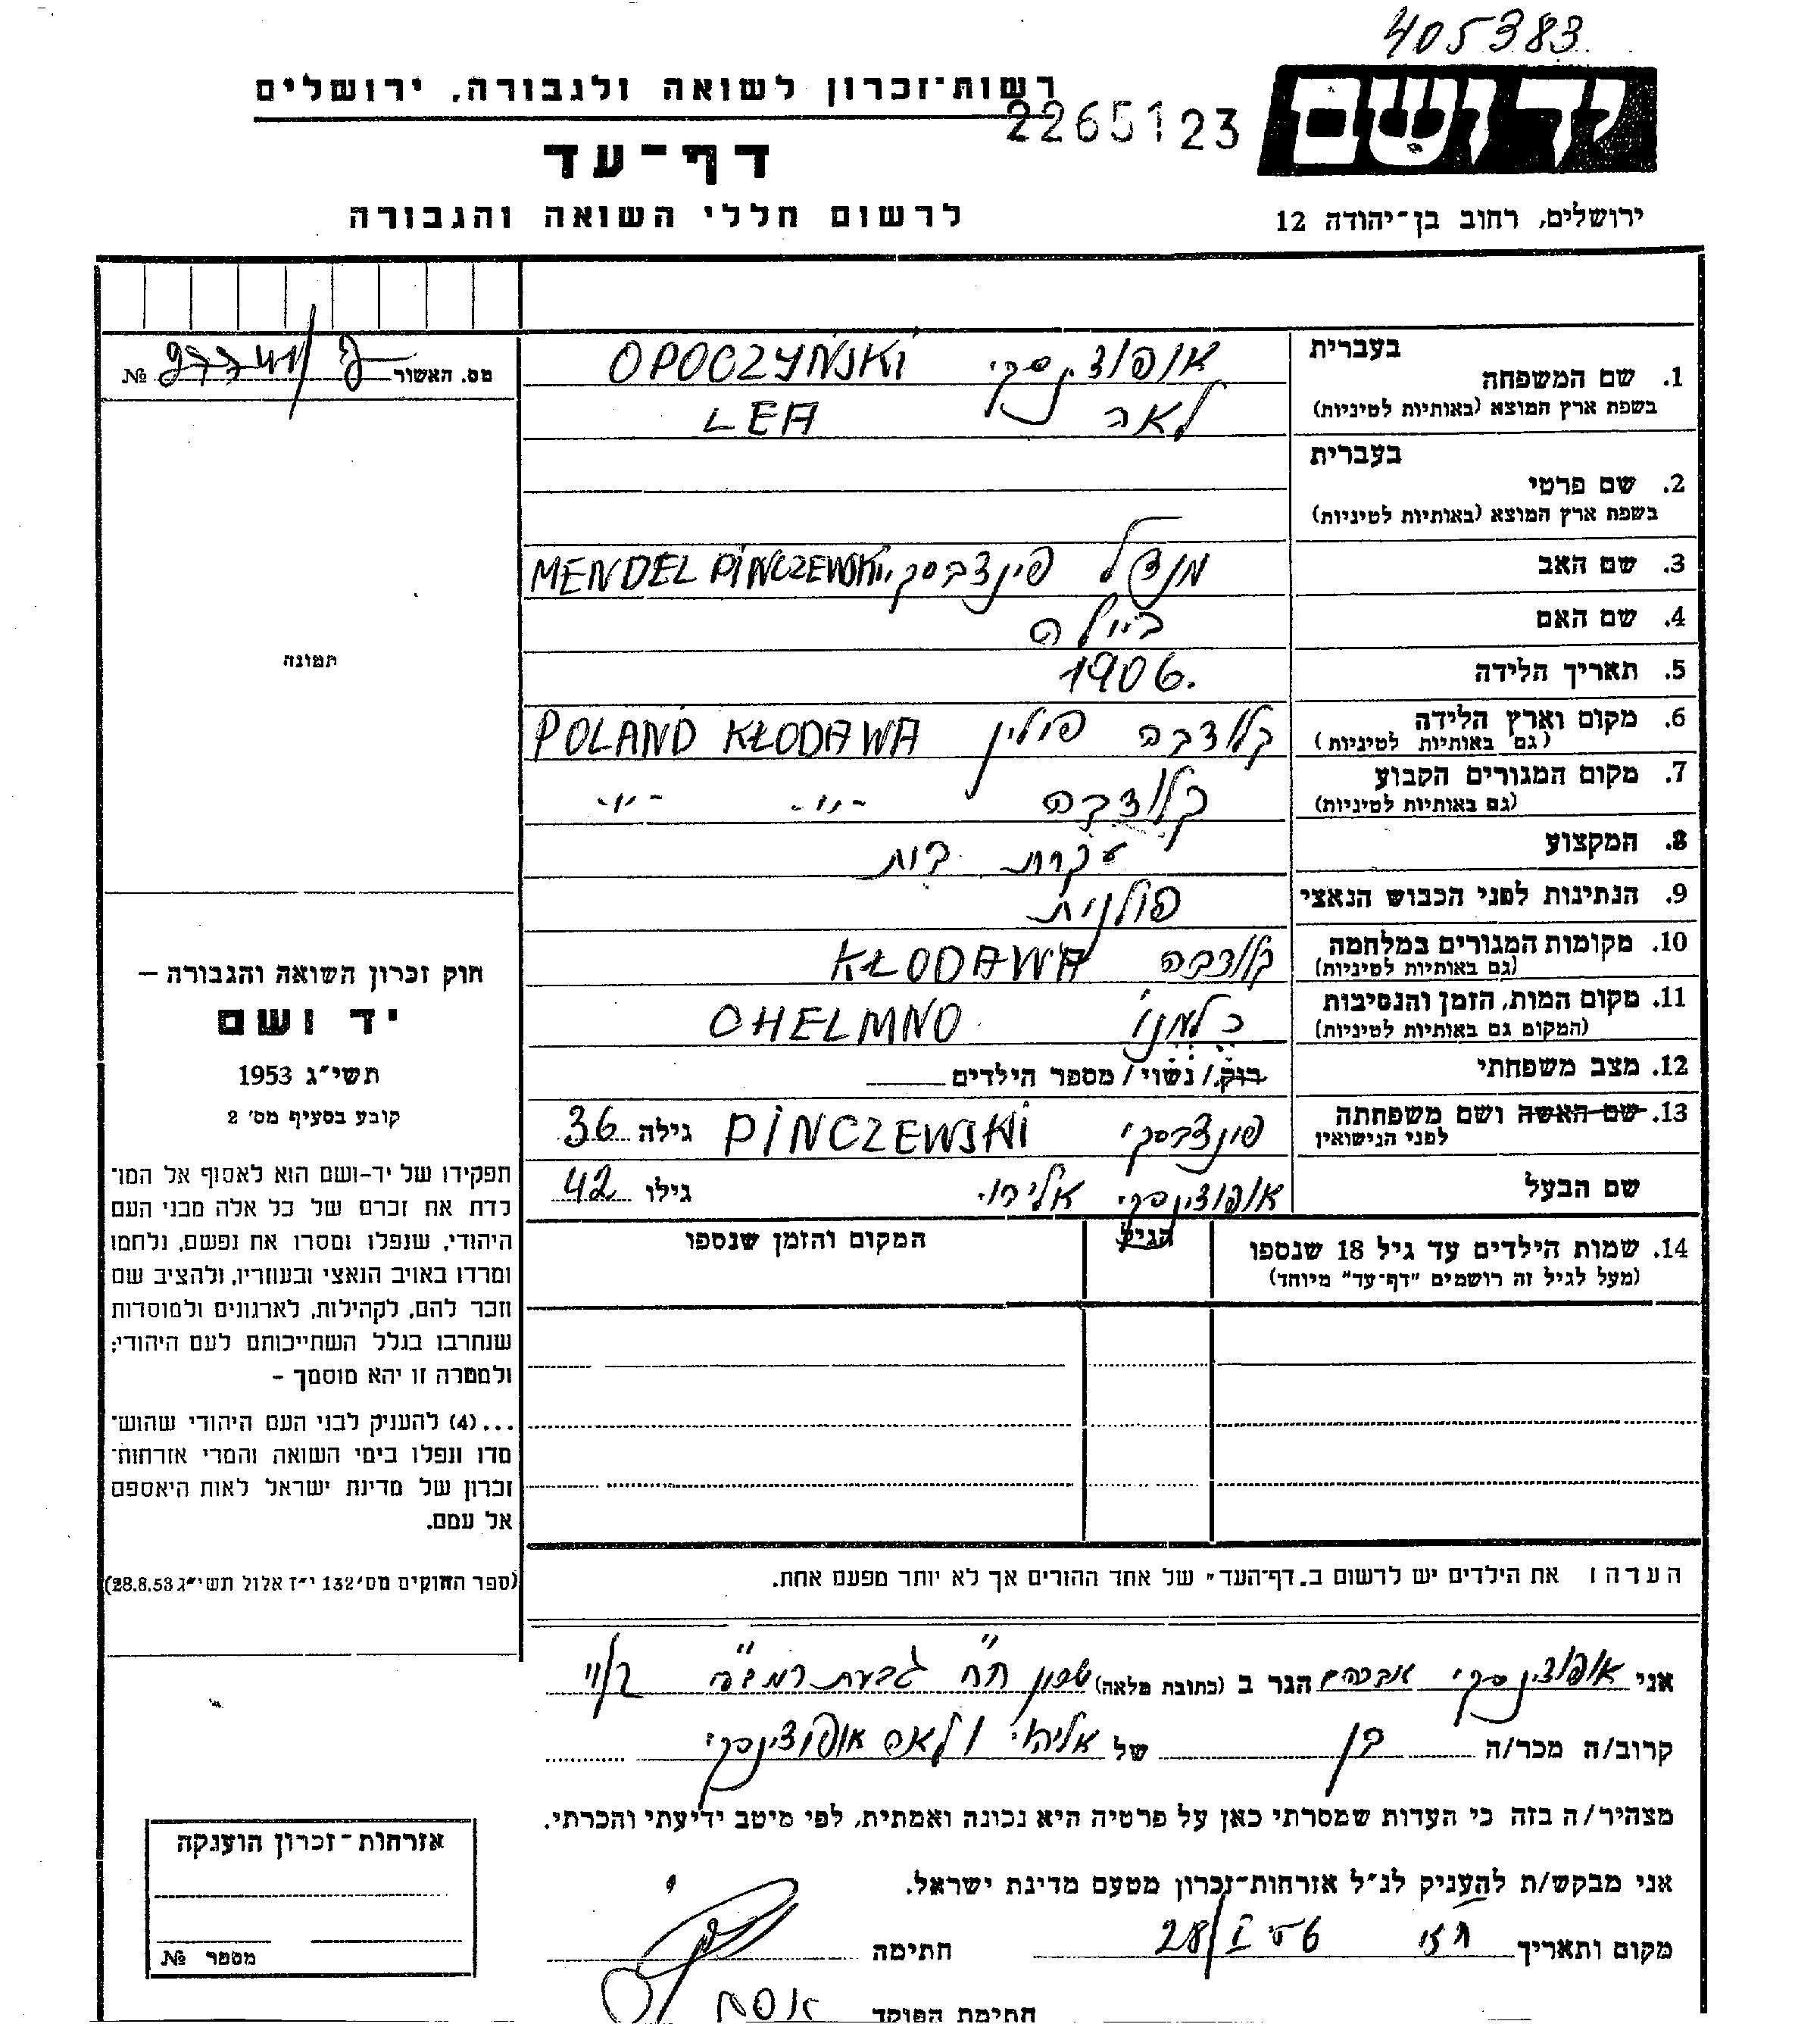 405383
רשות־זכרון לשואה ולגבורה, ירושלים
2265123
יד ושם
דף־עד
לרשום חללי השואה והגבורה
ירושלים, רחוב בן־יהודה 12
מס. האשור № 
בעברית
1. שם המשפחה
בשפת ארץ המוצא (באותיות לטיניות)
אופוצ'ינסקי OPOCZYŃSKI
לאה LEA
בעברית
2. שם פרטי
בשפת ארץ המוצא (באותיות לטיניות)
3. שם האב מנדל פינצבסקי MENDEL PINCZEWSKI
4. שם האם ביילה
5. תאריך הלידה 1906.
6. מקום וארץ הלידה קלודבה פולין POLAND KŁODAWA
(גם באותיות לטיניות)
7. מקום המגורים הקבוע קלודבה -"- -"-
(גם באותיות לטיניות)
8. המקצוע עקרת בית
9. הנתינות לפני הכבוש הנאצי פולנית
10. מקומות המגורים במלחמה קלודבה KŁODAWA
(גם באותיות לטיניות)
11. מקום המות, הזמן והנסיבות כלמנו CHELMNO
(המקום גם באותיות לטיניות)
12. מצב משפחתי רוק/נשוי/מספר הילדים
13. שם האשה ושם משפחתה פינצבסקי PINCZEWSKI גילה 36
לפני הנישואין
שם הבעל אופוצ'ינסקי אליהו גילו 42
14. שמות הילדים עד גיל 18 שנספו הגיל המקום והזמן שנספו
(מעל לגיל זה רושמים "דף־עד" מיוחד)
הערה: את הילדים יש לרשום ב"דף־העד" של אחד ההורים אך לא יותר מפעם אחת.
אני אופוצ'ינסקי אברהם הגר ב (כתובת מלאה) שכון ח"ח גבעת רמב"ם
קרוב/ה מכר/ה בן של אליהו ולאה אופוצ'ינסקי
מצהיר/ה בזה כי העדות שמסרתי כאן על פרטיה היא נכונה ואמתית, לפי מיטב ידיעתי והכרתי.
אני מבקש/ת להעניק לנ״ל אזרחות־זכרון מטעם מדינת ישראל.
מקום ותאריך 28/I חתימה
חתימת הפוקד
תמונה
חוק זכרון השואה והגבורה –
יד ושם
תשי״ג 1953
קובע בסעיף מס׳ 2
תפקידו של יד-ושם הוא לאסוף אל המו־
לדת את זכרם של כל אלה מבני העם
היהודי, שנפלו ומסרו את נפשם, נלחמו
ומרדו באויב הנאצי ובעוזריו, ולהציב שם
וזכר להם, לקהילות, לארגונים ולמוסדות
שנחרבו בגלל השתייכותם לעם היהודי;
ולמטרה זו יהא מוסמך –
...(4) להעניק לבני העם היהודי שהוש־
מדו ונפלו בימי השואה והמרי אזרחות־
זכרון של מדינת ישראל לאות היאספם
אל עמם.
(ספר החוקים מס׳ 132 י״ז אלול תשי״ג 28.8.53)
אזרחות־זכרון הוענקה
מספר №